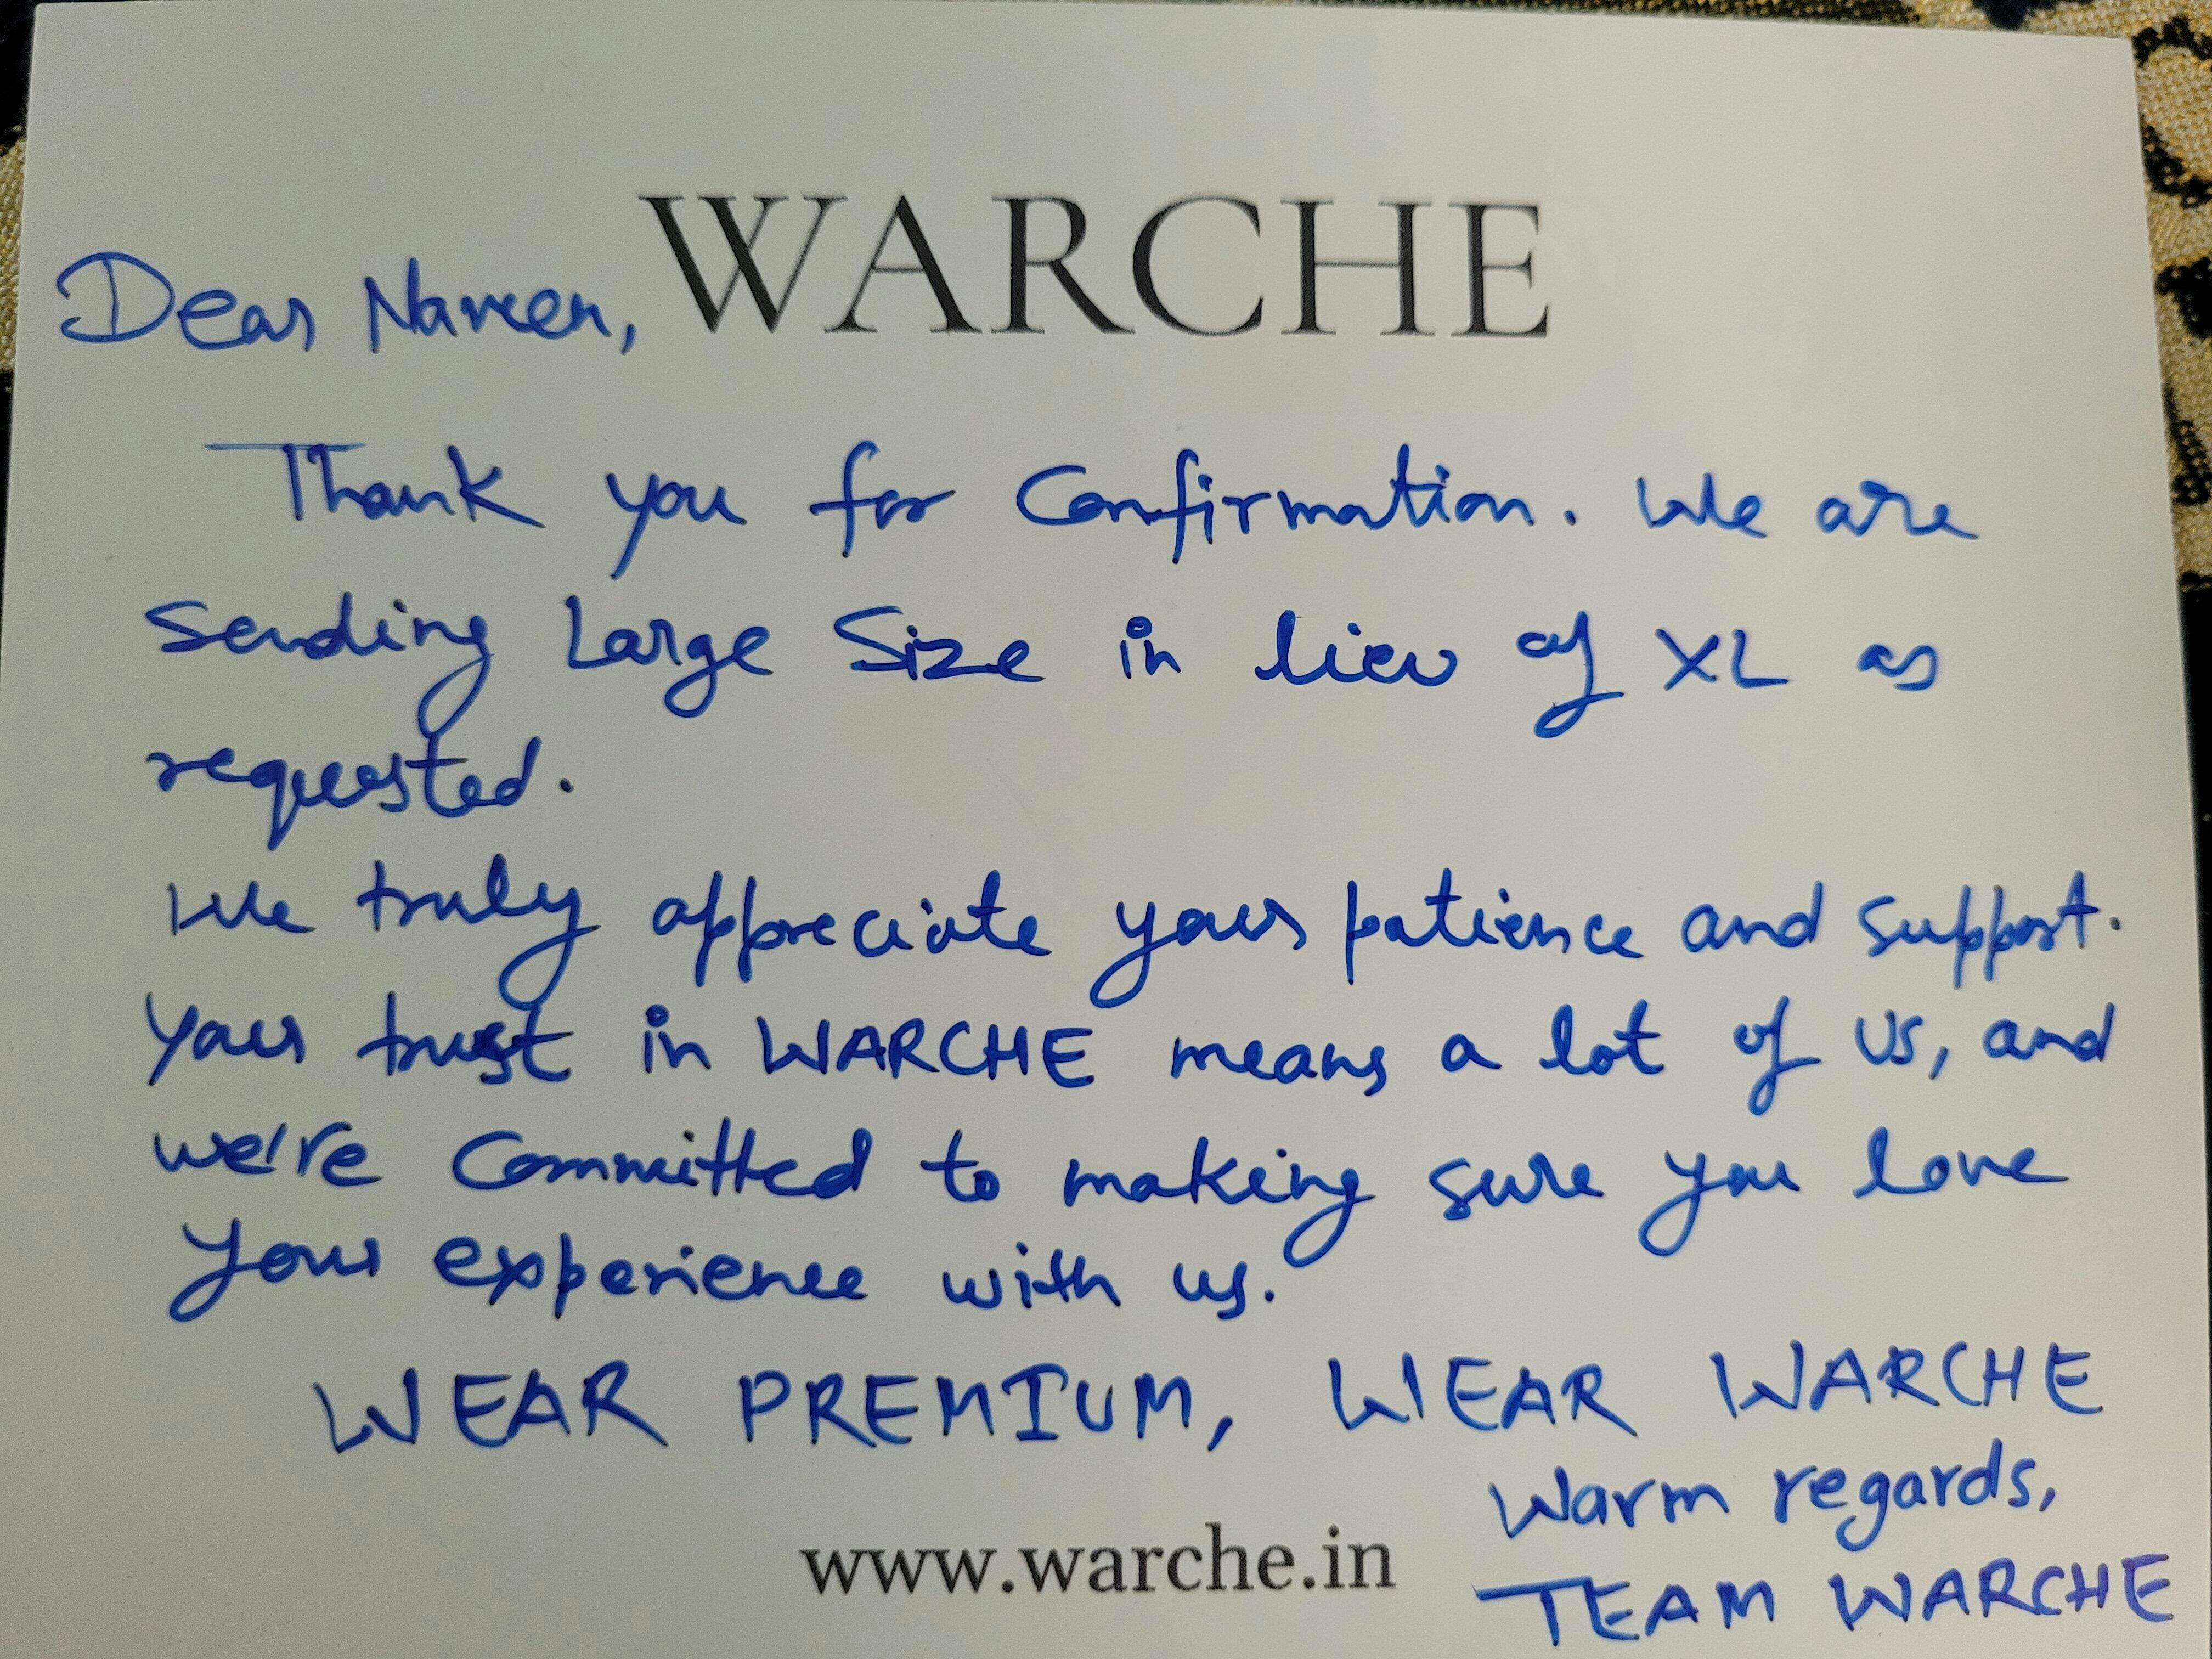 WARCHE
Dear Naveen,
Thank you for Confirmation. We are
Sending Large Size in lieu of XL as
requested.
We truly appreciate your patience and support.
Your trust in WARCHE means a lot of us, and
we're Committed to making sure you love
your experience with us.
WEAR PREMIUM, WEAR WARCHE
Warm regards,
www.warche.in
TEAM WARCHE